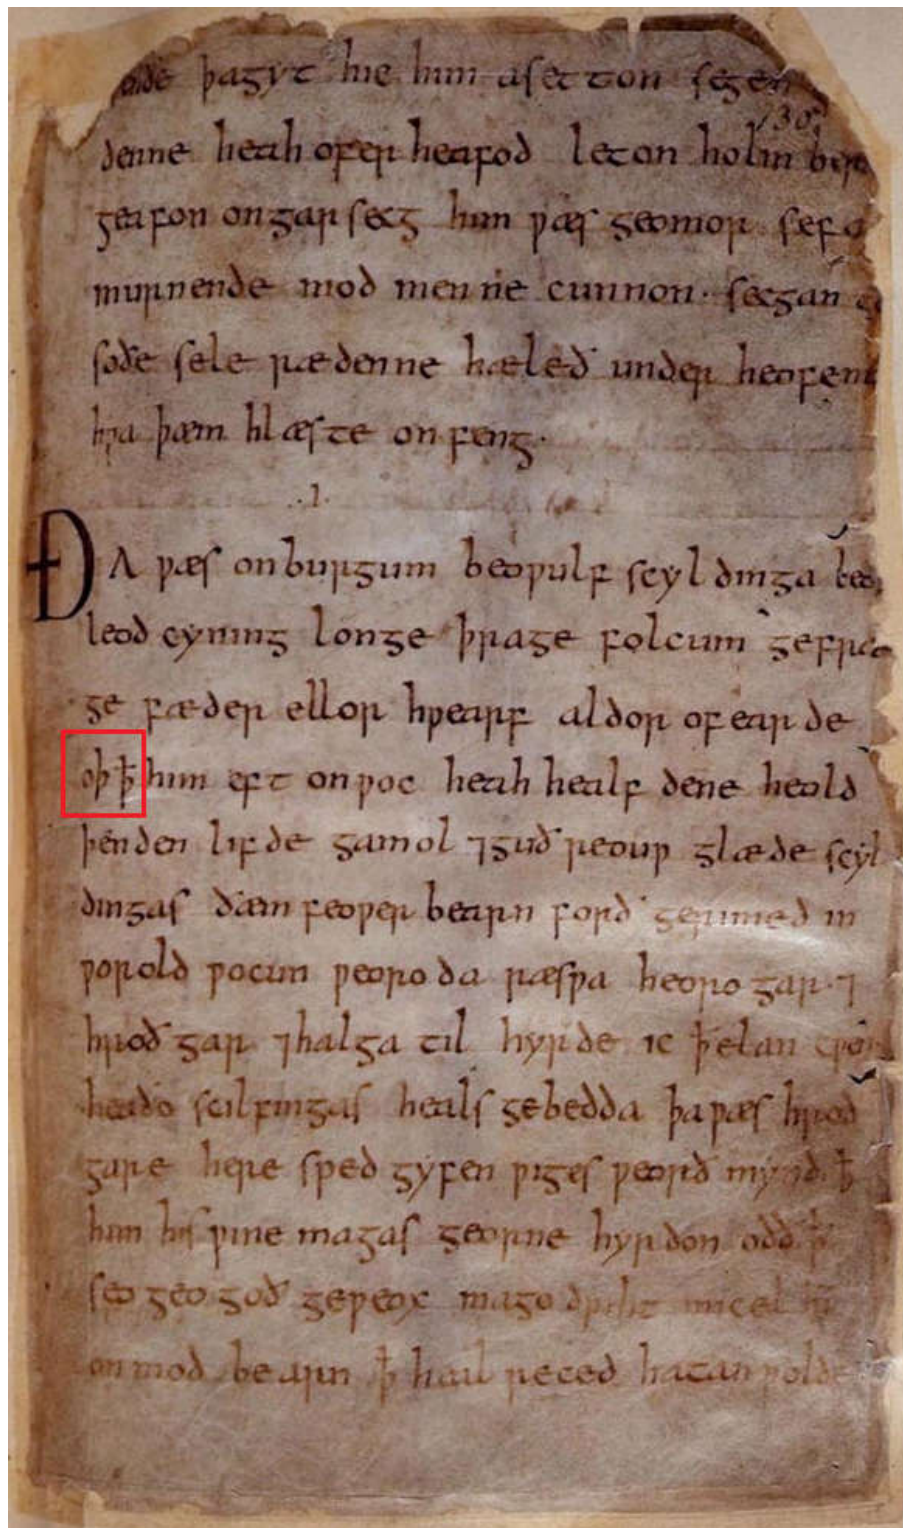 ende þagyt hie him asetton segen
130
denne heah ofer heafod leton holm ber
geafon ongarsecg him ƿæs geomor sefa
murnende mod men ne cunnon· secgan
soðe sele rædenne hæleð under heofen
hƿa þæm hlæste onfeng·
.I.
ÐA ƿæs onburgum beoƿulf scyldinga beo
leod cyning longe þrage folcum gefræ
ge fæder ellor hƿearf aldor ofearde
oþ ꝥ him eft onƿoc heah healfdene heold
þenden lifde gamol ⁊guðreouƿ glæde scyl
dingas ðæm feoƿer bearn forð gerimed in
ƿorold ƿocun ƿeoroda ræsƿa heorogar ⁊
hroðgar ⁊halga til hyrde ic ꝥ elan cƿen
heaðo scilfingas heals gebedda þaƿæs hroð
gare here sped gyfen ƿiges ƿeorð mynd ꝥ
him his ƿine magas georne hyrdon oðð ꝥ
seo geogoð geƿeox mago driht micel him
onmod bearn ꝥ heal reced hatan ƿolde